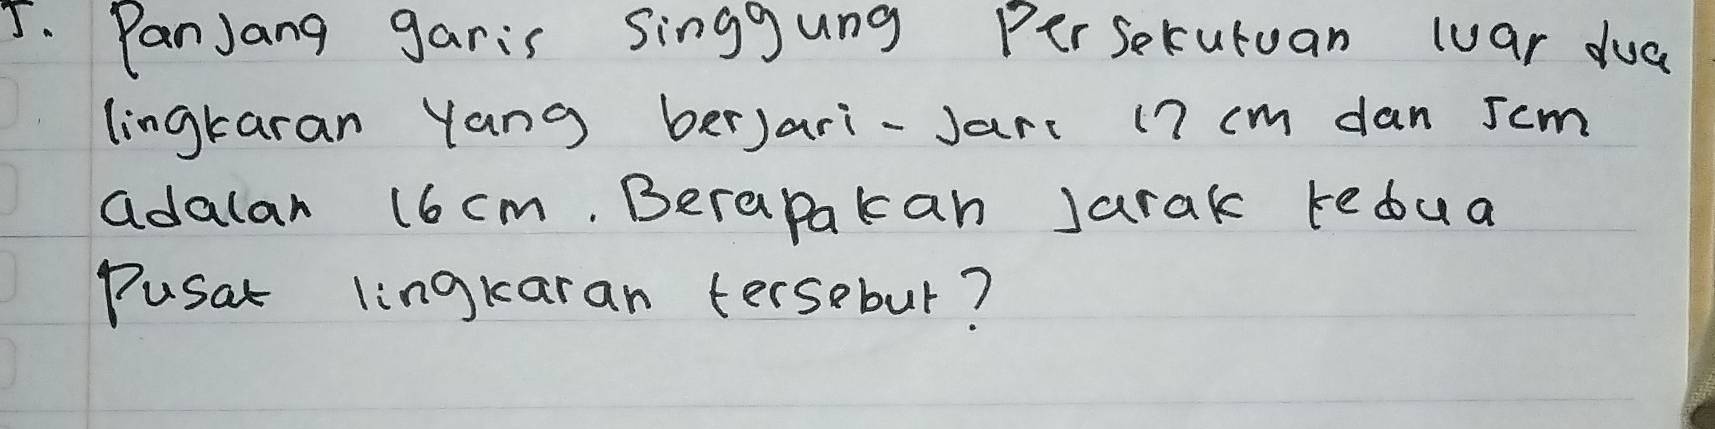 5. Panjang garis singgung Persekutuan luar dua
lingkaran yang berjari-jari 17 cm dan 5cm
adalah 16 cm. Berapakah jarak kedua
Pusat lingkaran tersebut?